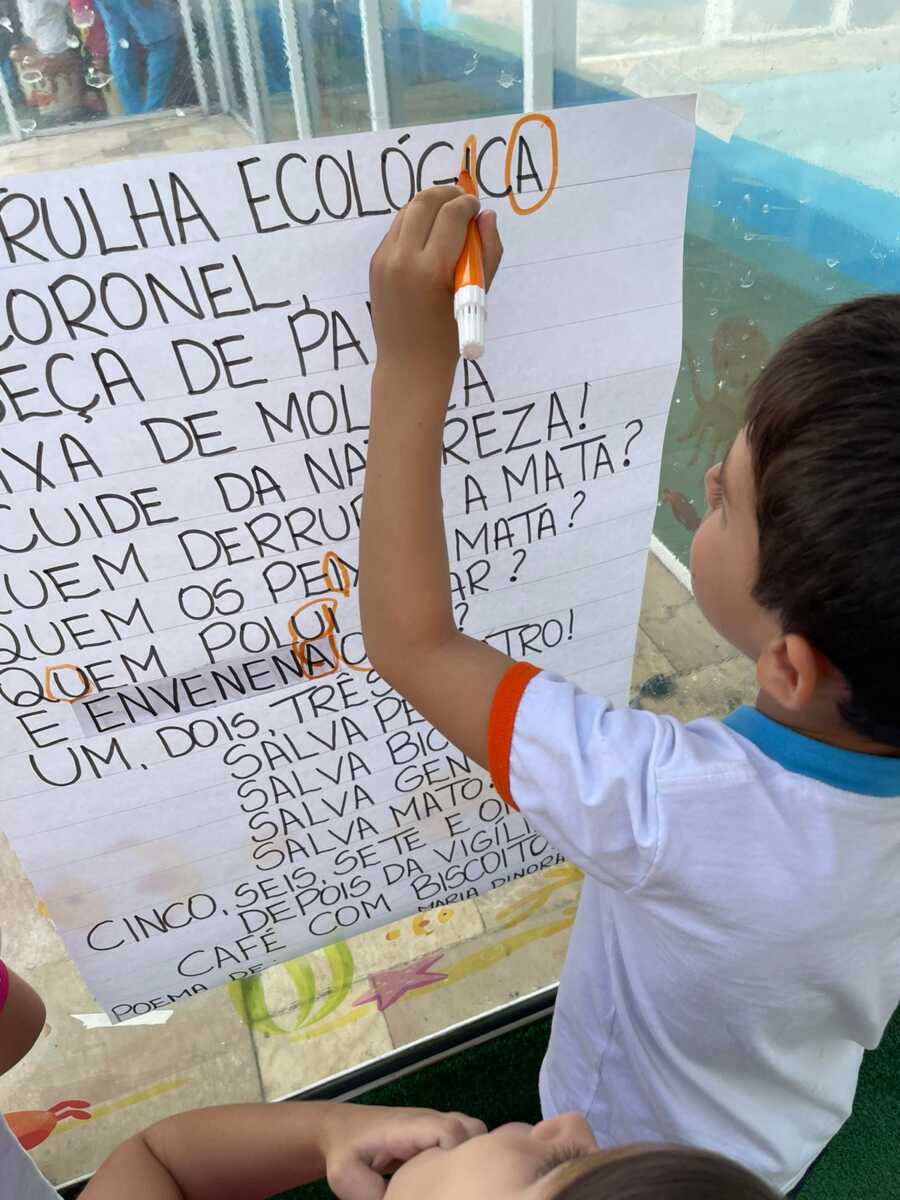 RULHA ECOLÓGICA
CORONEL,
BEÇA DE
AIXA DE
CUIDE DA NATUREZA!
QUEM DERRUBA A MATA?
QUEM OS PEIXES MATA?
QUEM POLUI O AR?
E ENVENENA O
UM, DOIS, TRÊS
SALVA
SALVA
SALVA
SALVA MATO.
CINCO, SEIS, SETE E
DEPOIS DA
CAFÉ COM BISCOITO
POEMA DE: MARIA DINORA